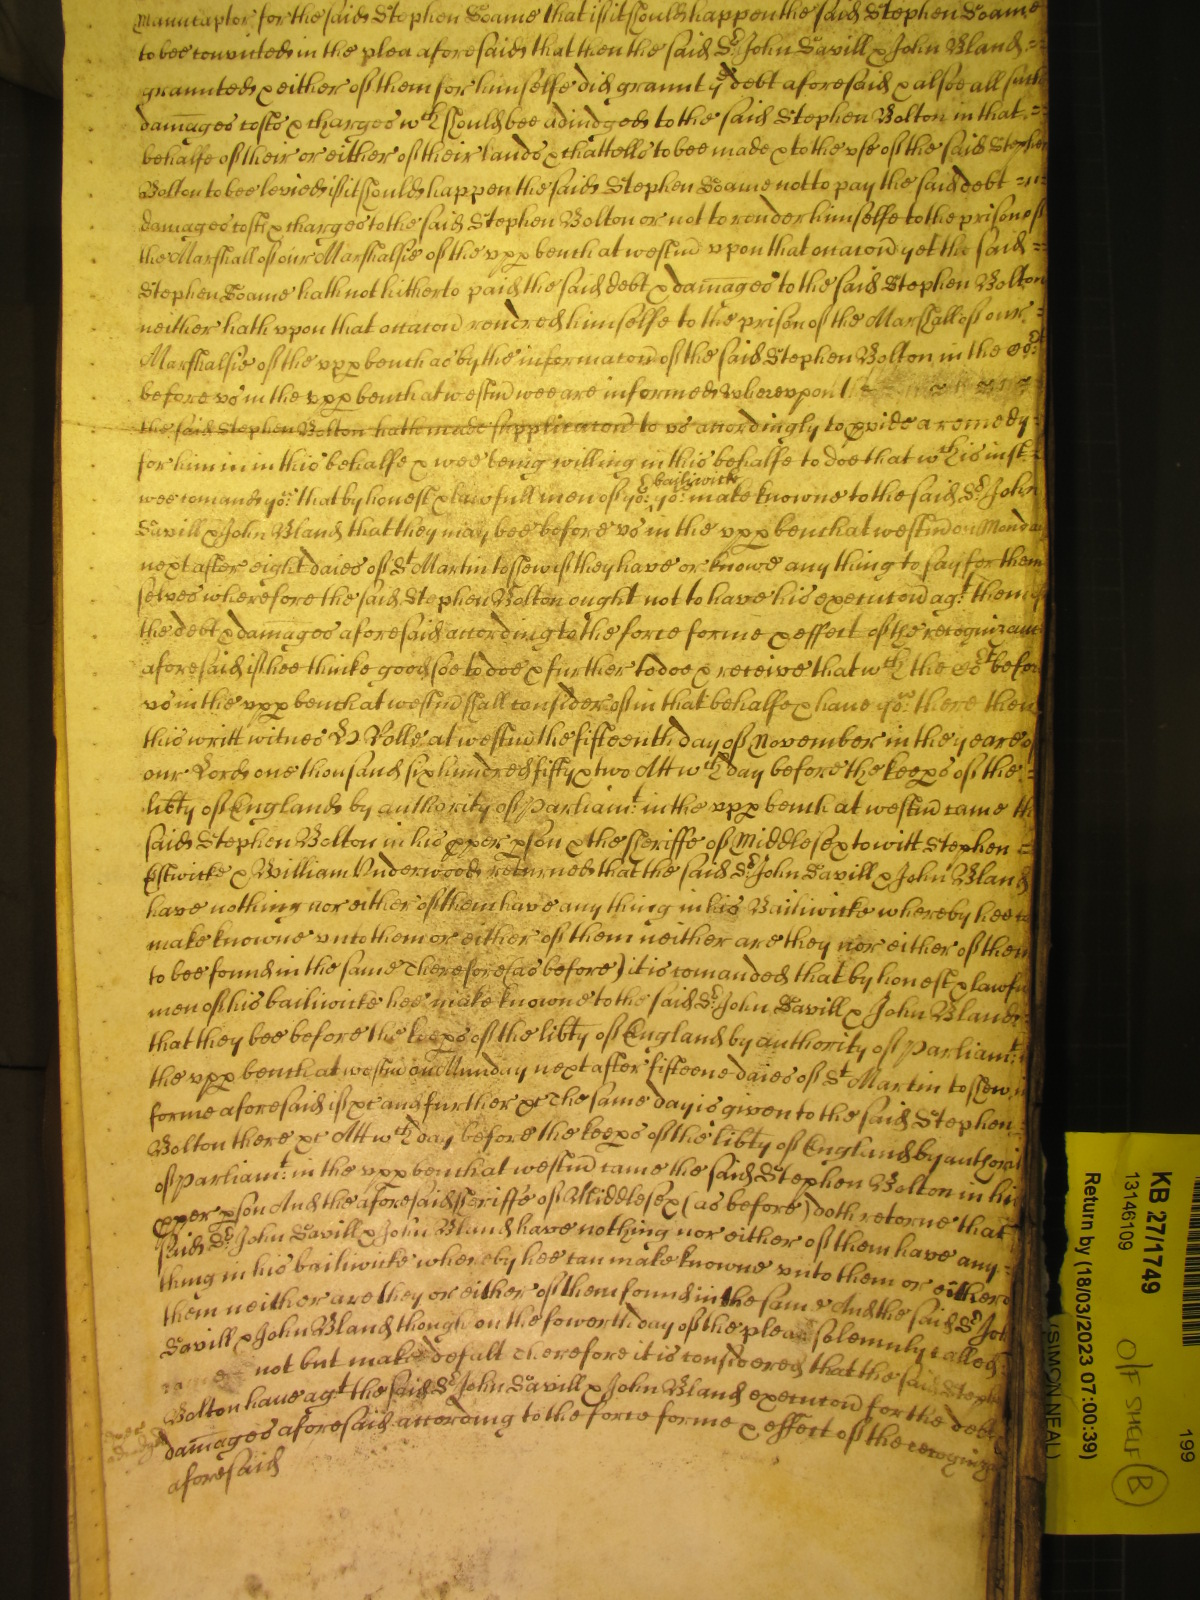 Manucaptor for the said Stephen Soame that if it should happen the said Stephen Soame
to bee convicted in the plea aforesaid that then the said Sr. John Savill & John Bland =
graunted & either of them for himselfe did graunt ye debt aforesaid & alsoe all such
damages costs & charges wch should bee adiudged to the said Stephen Bolton in that =
behalfe of their or either of their lands & chattells to bee made & to the vse of the said Stephen
Bolton to bee levied if it should happen the said Stephen Soame not to pay the said debt =
damages costs & charges to the said Stephen Bolton or not to render himselfe to the prison of
the Marshall of our Marshalsie of the vpp bench at westm vpon that occacon yet the said =
Stephen Soame hath not hitherto paid the said debt & damages to the said Stephen Bolton
neither hath vpon that occacon rendred himselfe to the prison of the Marshall of our =
Marshalsie of the vpp bench as by the informacon of the said Stephen Bolton in the Cort
before vs in the vpp bench at westm wee are informed Wherevpon
the said Stephen Bolton hath made supplicacon to vs accordingly to pvide a remedy =
for him in in this behalfe & wee being willing in this behalfe to doe that wch is iust
wee comand yo: that by honest & lawfull men of yo: yo: bailiwick make knowne to the said Sr. John
Savill & John Bland that they may bee before vs in the vpp bench at westm on Monday
next after eight daies of St Martin to shew if they have or knowe any thing to say for them
selves wherefore the said Stephen Bolton ought not to have his execucon agt. them of
the debt & damages aforesaid according to the force forme & effect of the recognizance
aforesaid if hee thinke good soe to doe & further to doe & receive that wch the Cort before
vs in the vpp bench at westm shall consider of in that behalfe & haue yo: there then
this writt witnes H Rolle at westm the fifteenth day of November in the yeare of
our Lord one thousand six hundred fifty & two Att wch day before the keeps of the =
libty of England by authority of Parliamt. in the vpp bench at westm came the
said Stephen Bolton in his pper pson & the sheriffe of Middlesex to witt Stephen =
Estwicke & William Vnderwood returned that the said Sr. John Savill & John Bland
have nothing nor either of them have any thing in his Bailiwicke whereby hee can
make knowne vnto them or either of them neither are they nor either of them
to bee found in the same Therefore (as before) it is comanded that by honest & lawfull
men of his bailiwicke hee make knowne to the said Sr. John Savill & John Bland =
that they bee before the keeps of the libty of England by authority of Parliamt. in
the vpp bench at westm on Munday next after fifteene daies of St Martin to shew in
forme aforesaid if &c and further &c The same day is given to the said Stephen =
Bolton there &c Att wch day before the keeps of the libty of England by authority
of Parliamt. in the vpp bench at westm came the said Stephen Bolton in his
pper pson And the aforesaid sheriffe of Middlesex (as before) doth retorne that
said Sr. John Savill & John Bland have nothing nor either of them have any =
thing in his bailiwicke whereby hee can make knowne vnto them or either of
them neither are they or either of them found in the same And the said Sr. John
Savill & John Bland though on the fowerth day of the plea solemnly called
came not but make defalt Therefore it is considered that the said Stephen
Bolton haue agt. the said Sr. John Savill & John Bland execucon for the debt
damages aforesaid according to the force forme & effect of the recogniz
aforesaid
KB 27/1749
13146109
Return by (18/03/2023 07:00:39)
(SIMON NEAL)
199
Off SHELF (B)